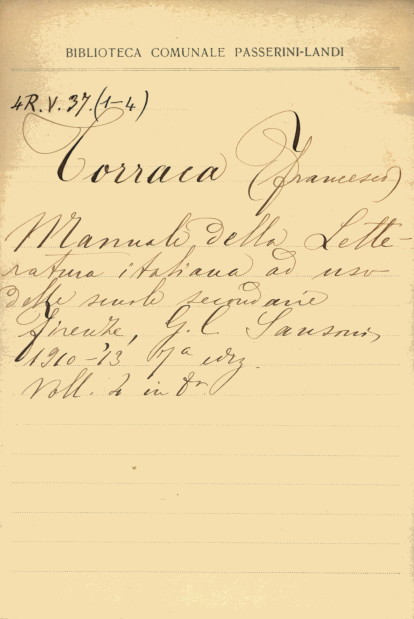 BIBLIOTECA COMUNALE PASSERINI-LANDI
4R.V.37.(1-4)
Torraca (Francesco)
Manuale della Lette-
ratura italiana ad uso
delle scuole secondarie
Firenze, G. C. Sansoni,
1910-'13 7a ediz.
Voll. 4 in 8°